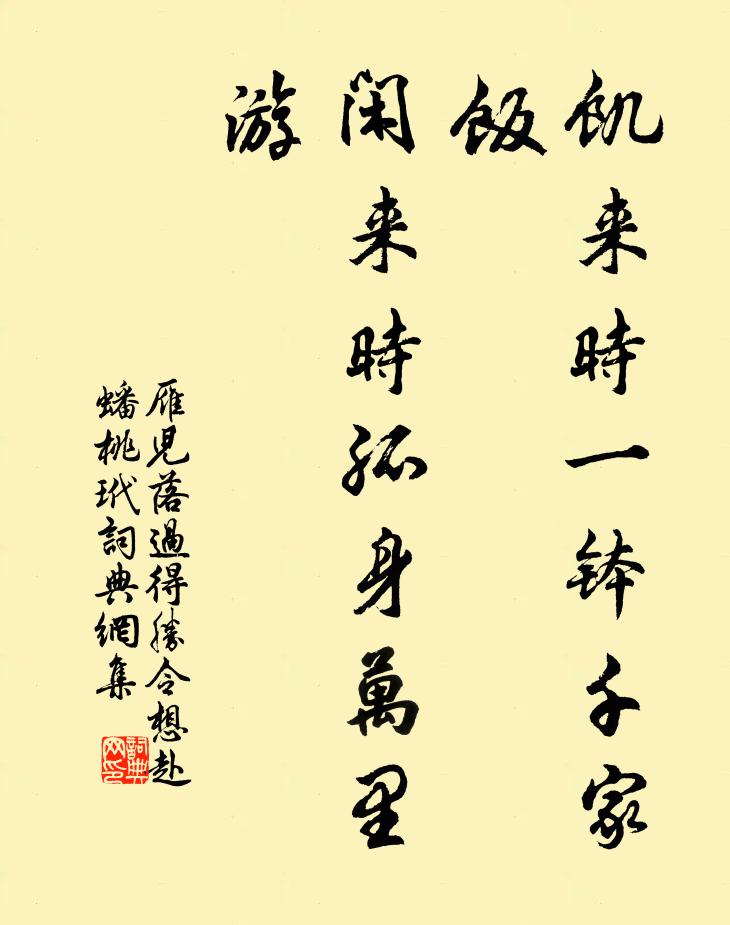 飢来時一鉢千家
飯
閑来時孤身萬里
游
雁兒落過得勝令想赴
蟠桃玳詞典網集
詞典
网印